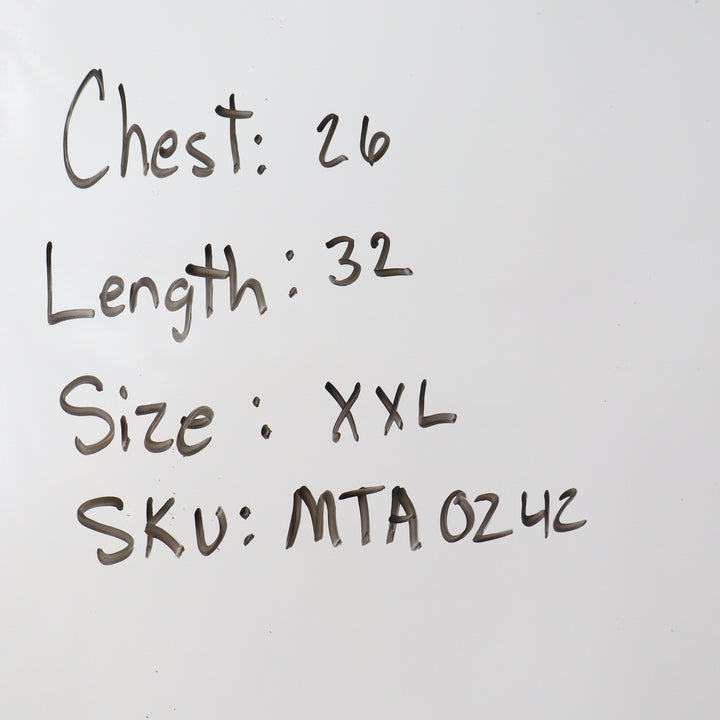 Chest: 26
Length: 32
Size: XXL
SKU: MTA0242